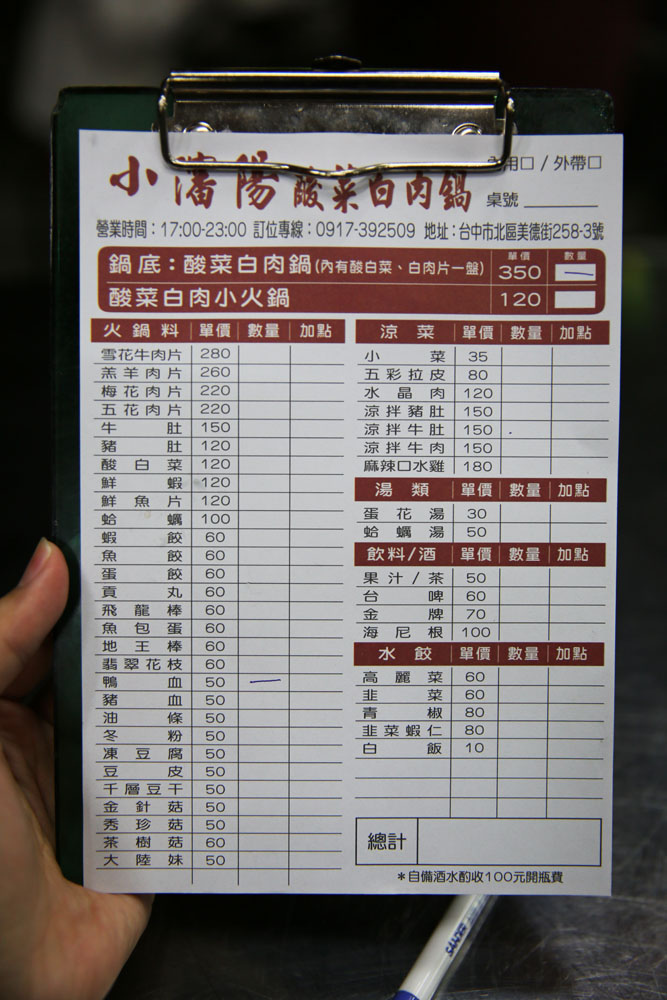 小瀋陽 酸菜白肉鍋
用□ / 外帶□
桌號
營業時間：17:00-23:00 訂位專線：0917-392509 地址：台中市北區美德街258-3號
單價 數量
鍋底：酸菜白肉鍋(內有酸白菜、白肉片一盤) 350 一
酸菜白肉小火鍋 120
火鍋料 單價 數量 加點
雪花牛肉片 280
羔羊肉片 260
梅花肉片 220
五花肉片 220
牛肚 150
豬肚 120
酸白菜 120
鮮蝦 120
鮮魚片 120
蛤蠣 100
蝦餃 60
魚餃 60
蛋餃 60
貢丸 60
飛龍棒 60
魚包蛋 60
地王棒 60
翡翠花枝 60
鴨血 50 一
豬血 50
油條 50
冬粉 50
凍豆腐 50
豆皮 50
千層豆干 50
金針菇 50
秀珍菇 50
茶樹菇 60
大陸妹 50
涼菜 單價 數量 加點
小菜 35
五彩拉皮 80
水晶肉 120
涼拌豬肚 150
涼拌牛肚 150
涼拌牛肉 150
麻辣口水雞 180
湯類 單價 數量 加點
蛋花湯 30
蛤蠣湯 50
飲料/酒 單價 數量 加點
果汁/茶 50
台啤 60
金牌 70
海尼根 100
水餃 單價 數量 加點
高麗菜 60
韭菜 60
青椒 80
韭菜蝦仁 80
白飯 10
總計
＊自備酒水酌收100元開瓶費